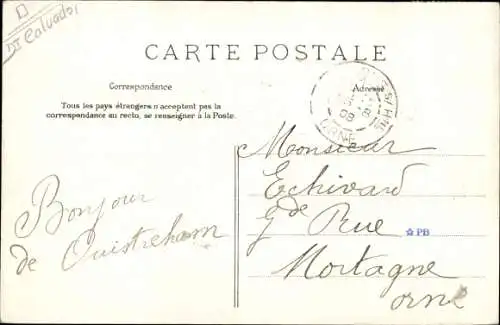 Dt Calvados
CARTE POSTALE
Correspondance
Adresse
Tous les pays étrangers n'acceptent pas la
correspondance au recto, se renseigner à la Poste.
ORNE
08
Bonjour
de Ouistreham
Monsieur
Echivard
Gde Rue
☆PB
Mortagne
orne